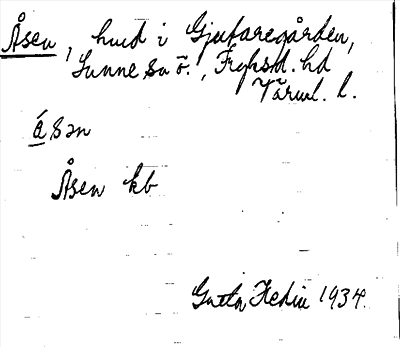 Åsen, hmd i Gjutaregården,
Sunne sn ö., Fryksd. hd
Värml. l.
åsən
Åsen kb
Greta Hedin 1934.